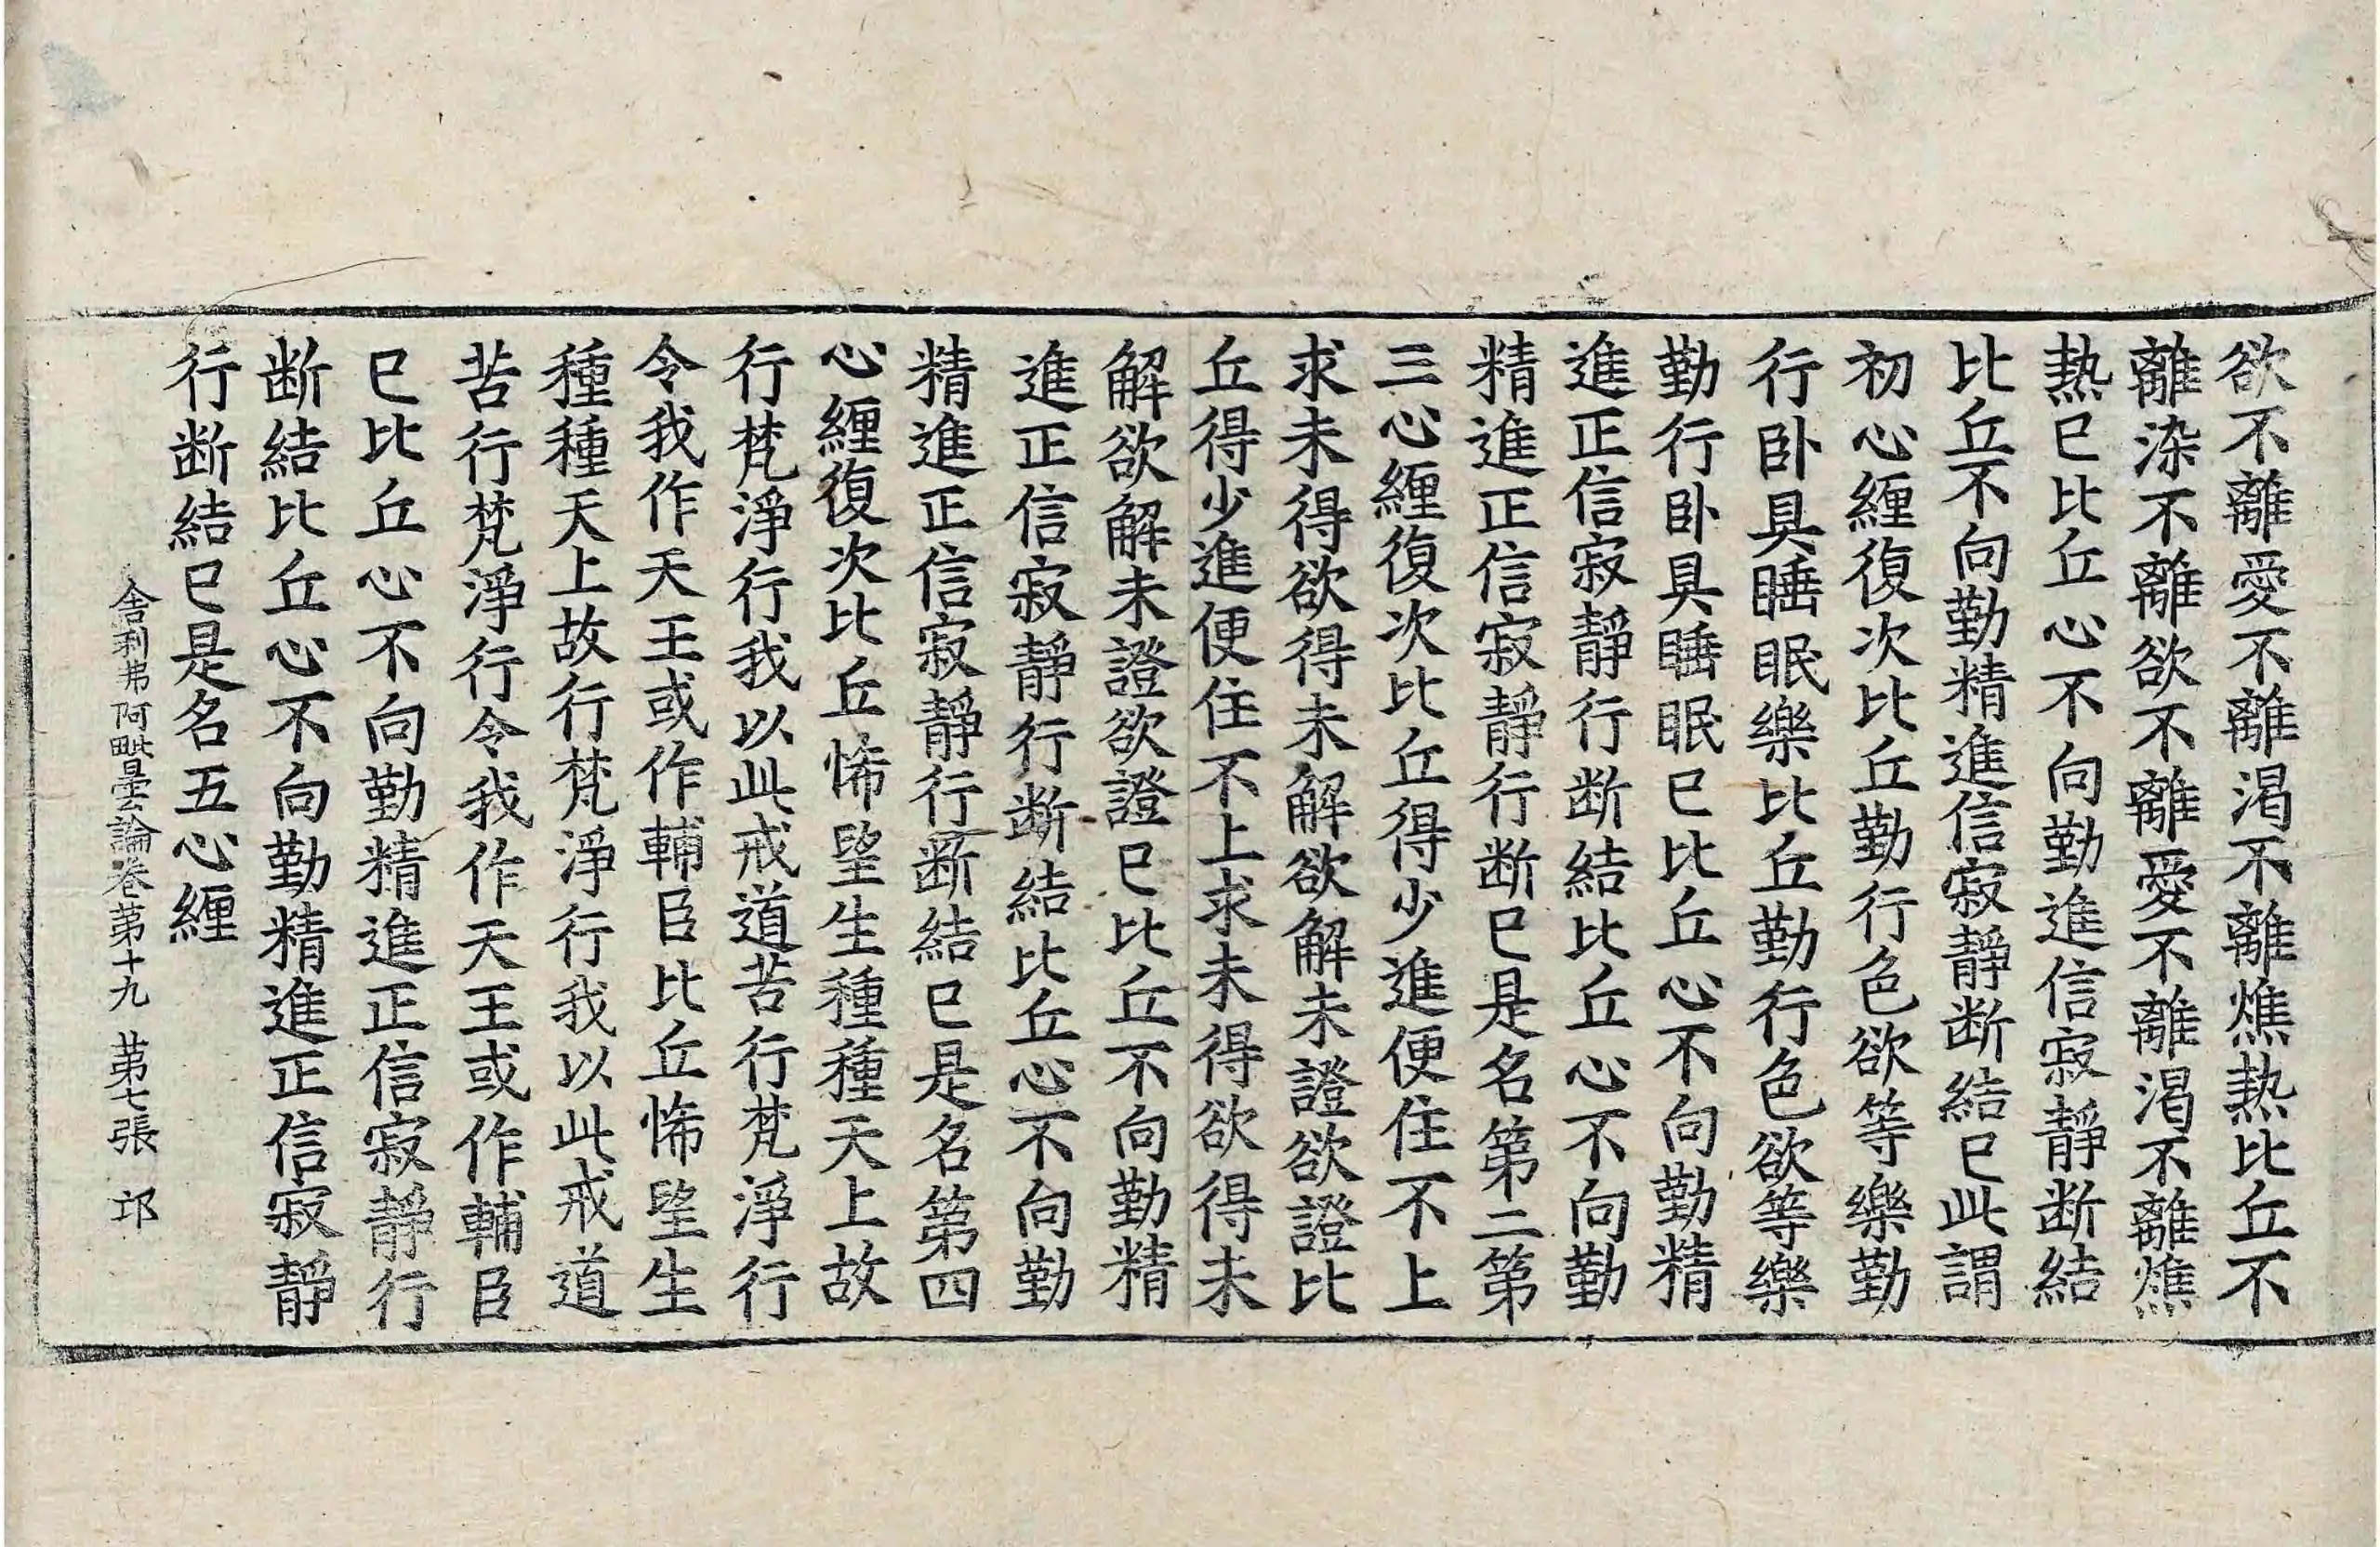 欲不離愛不離渴不離燋熱比丘不
離染不離欲不離愛不離渴不離燋
熱已比丘心不向勤進信寂靜断結
比丘不向勤精進信寂靜断結已此謂
初心纒復次比丘勤行色欲等樂勤
行卧具睡眠樂比丘勤行色欲等樂
勤行卧具睡眠已比丘心不向勤精
進正信寂靜行断結比丘心不向勤
精進正信寂靜行断已是名第二第
三心纒復次比丘得少進便住不上
求未得欲得未解欲解未證欲證比
丘得少進便住不上求未得欲得未
解欲解未證欲證已比丘不向勤精
進正信寂靜行断結比丘心不向勤
精進正信寂靜行断結已是名第四
心纒復次比丘悕望生種種天上故
行梵淨行我以此戒道苦行梵淨行
令我作天王或作輔臣比丘悕望生
種種天上故行梵淨行我以此戒道
苦行梵淨行令我作天王或作輔臣
已比丘心不向勤精進正信寂靜行
断結比丘心不向勤精進正信寂靜
行断結已是名五心纒
舍利弗阿毗曇論卷第十九 第七張 邙